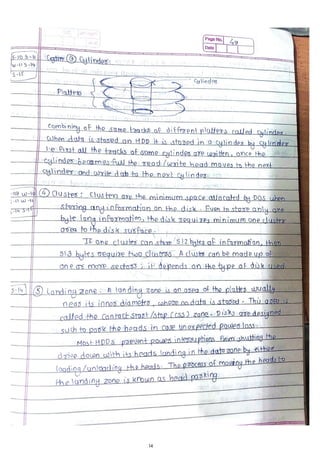 Page No. 60
Date
S-10 S-11
W-11 S-14
S-15
③ Cylinder
Cylinder
Platters
Combining of the same tracks of different platters called cylinder.
When data is stored on HDD it is stored in a cylinder by cylinder
i.e. First all the tracks of some cylinder are written, once the
cylinder becomes full the read/write head moves to the next
cylinder and write data to the next cylinder.
④ Cluster: Clusters are the minimum space allocated by DOS when
storing any information on the disk. Even to store only one
byte long information, the disk requires minimum one cluster
area to the disk surface.
If one cluster can store 512 bytes of information, then
513 bytes require two clusters. A cluster can be made up of
one or more sectors; it depends on the type of disk used.
S-14
⑤ Landing zone: A landing zone is an area of the platter usually
near its inner diameter, where no data is stored. This area is
called the Contact Start/Stop (CSS) zone. Disks are designed
such to park the heads in case unexpected power loss.
Most HDDs prevent power interruptions from shutting the
drive down with its heads landing in the data zone by either
loading/unloading the heads. The process of moving the heads to
the landing zone is known as head parking.
14